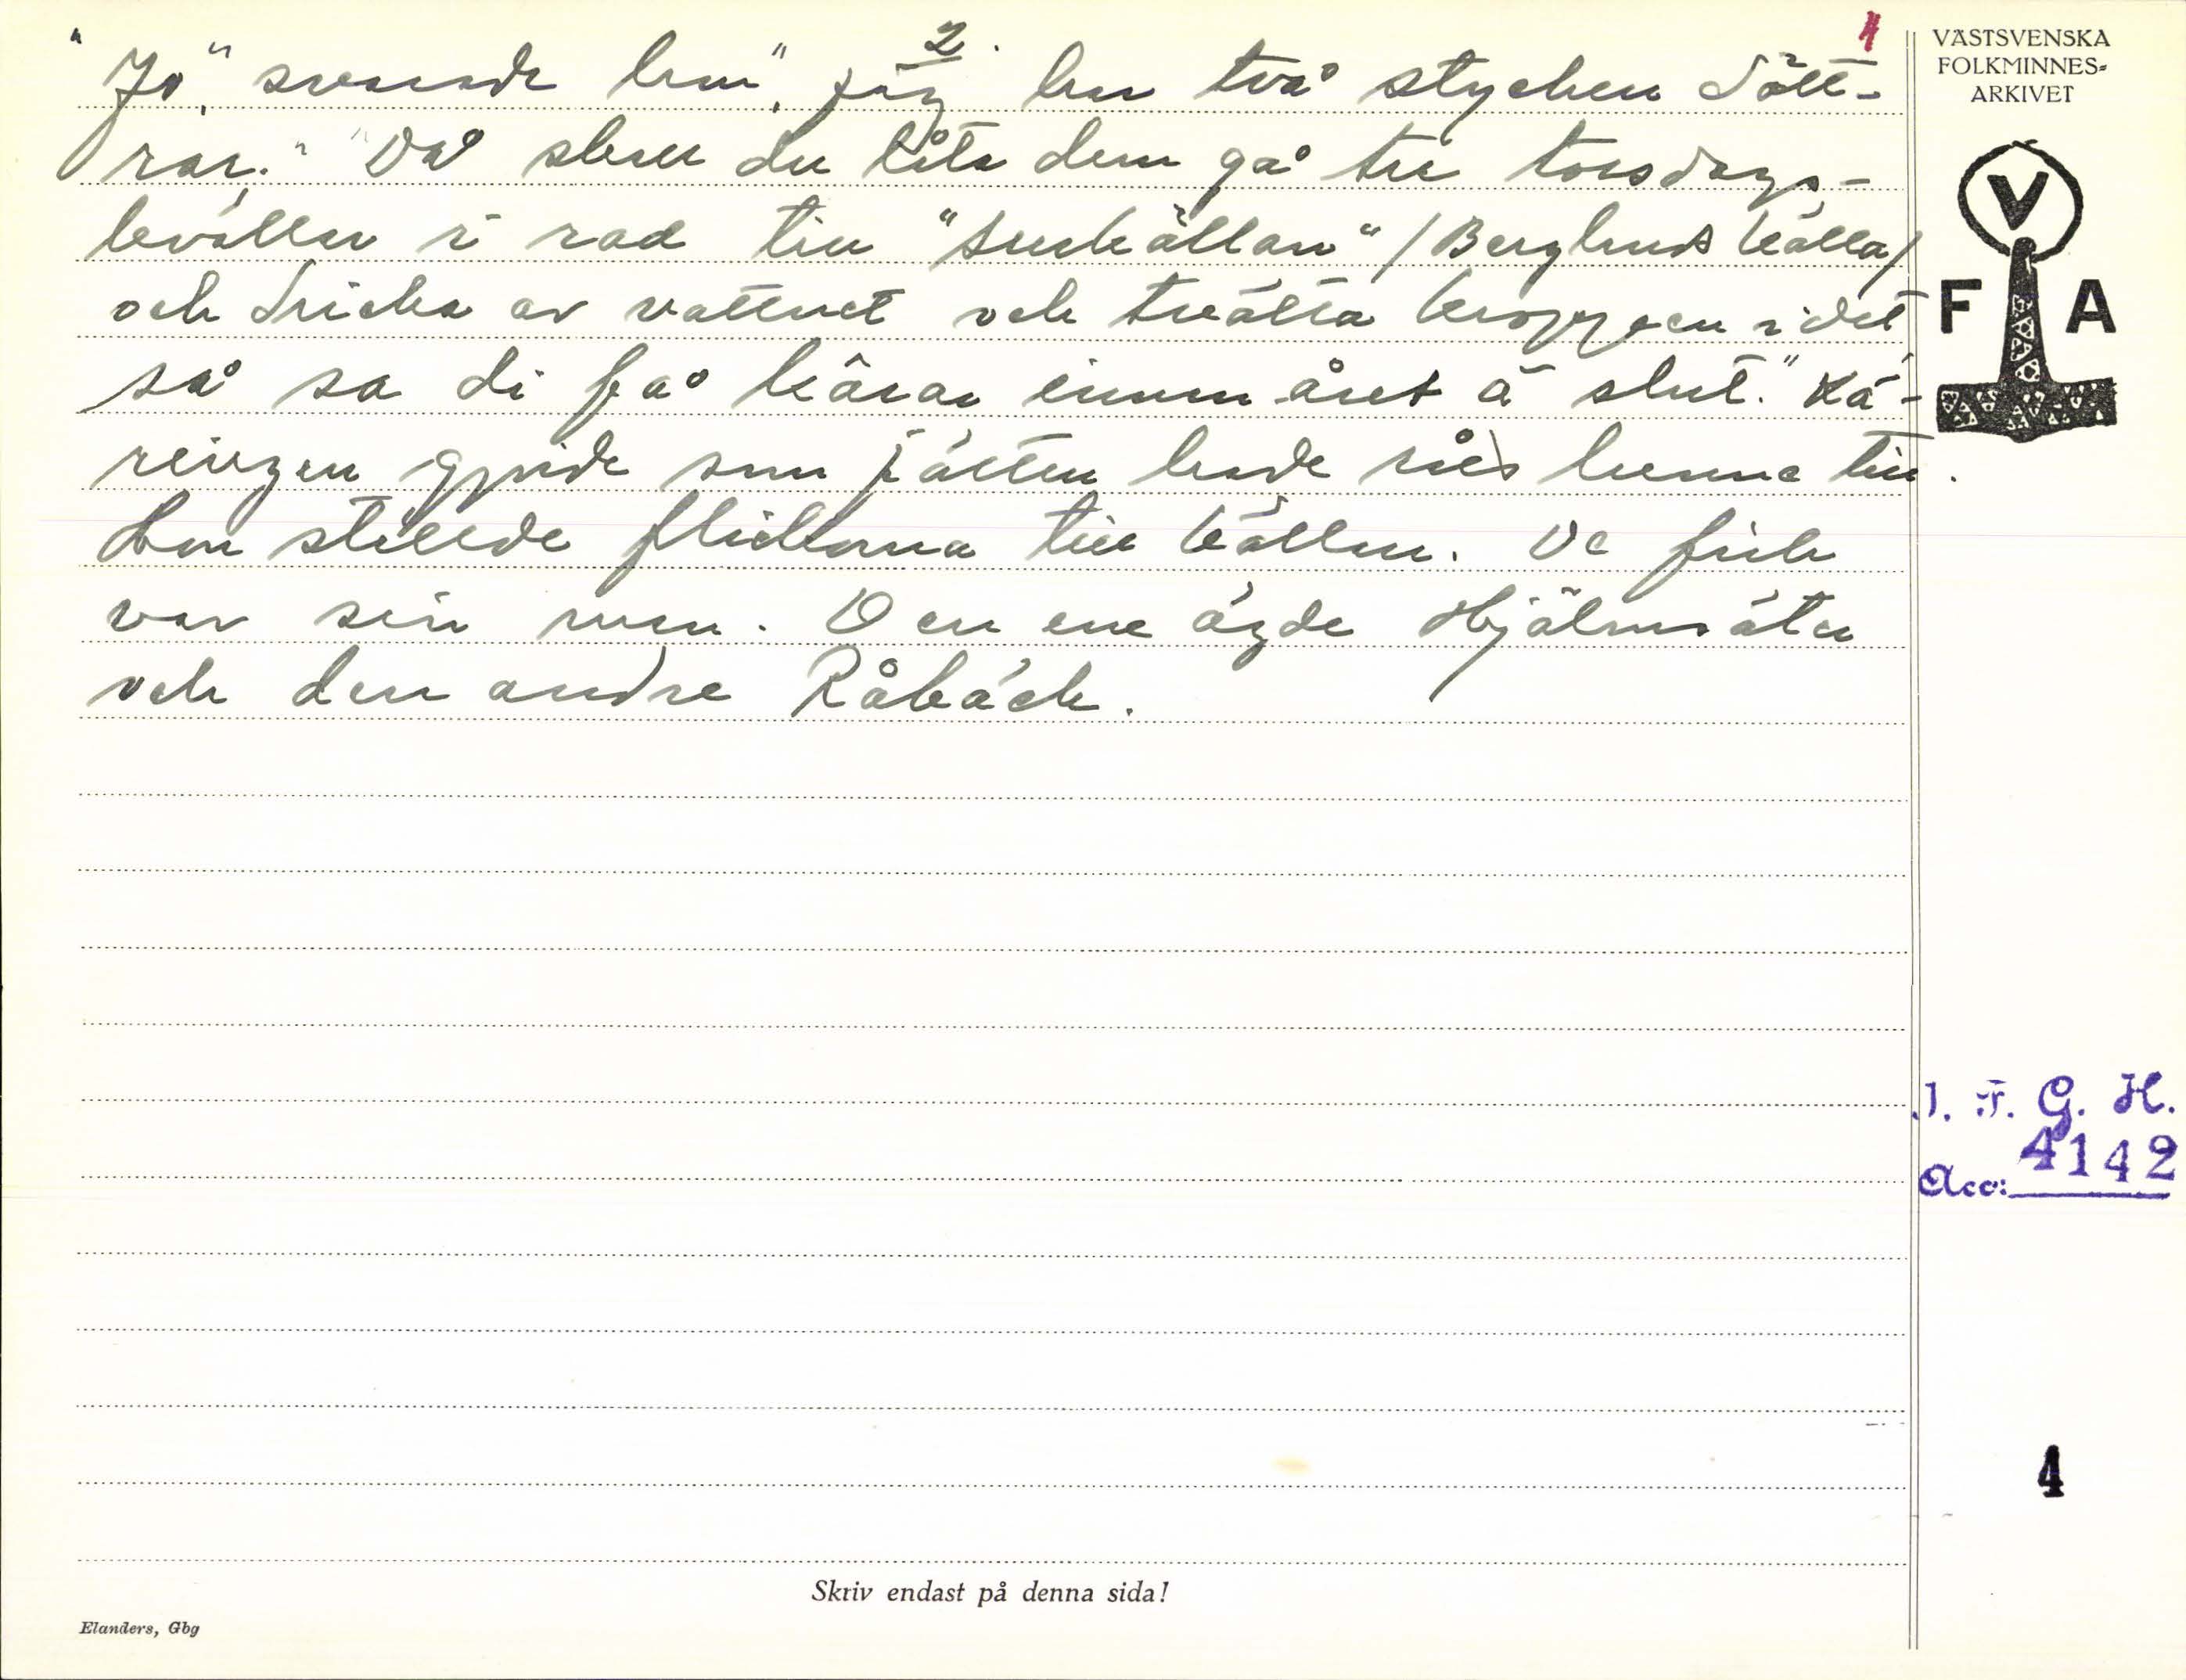 2.
4
"Jo," svarade hon, "jag har två stycken dött-
rar." "Då skall du låta dem gå tre torsdags-
kvällar i rad till "Surkällan" /Berglunds källa/
och dricka av vattnet och tvätta kroppen i det
så sa di få kärar innan året ä slut." Kä-
ringen gjorde som jätten hade rått henne till.
Hon ställde flickorna till källan. De fick
var sin man. Den ene ägde Hjälmsäter
och den andre Råbäck.
VÄSTSVENSKA
FOLKMINNES-
ARKIVET
V
F A
I. F. G. H.
Acc: 4142
4
Skriv endast på denna sida!
Elanders, Gbg